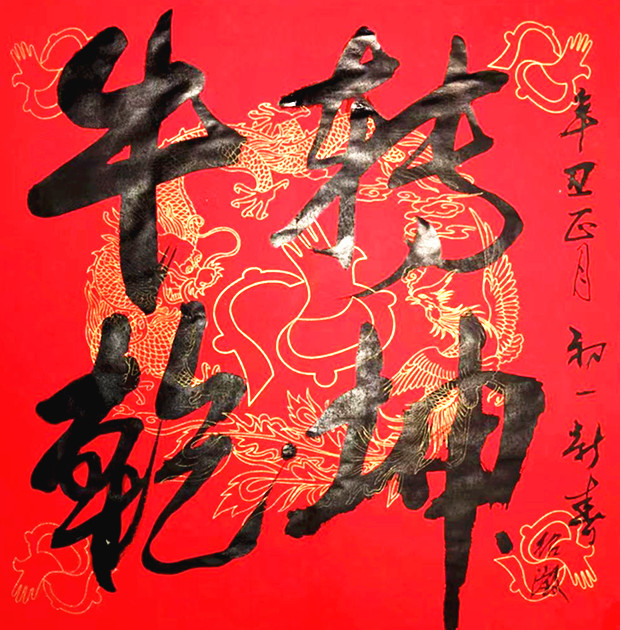 牛转
乾坤
辛丑正月初一新春